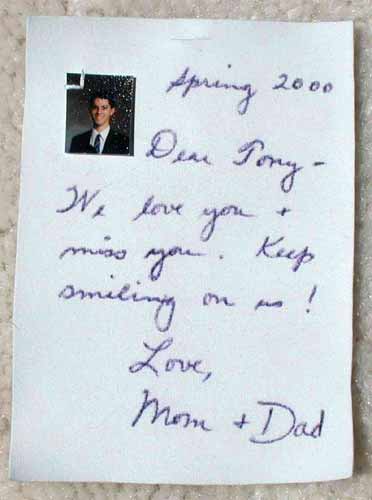 Spring 2000
Dear Tony -
We love you +
miss you. Keep
smiling on us!
Love,
Mom + Dad